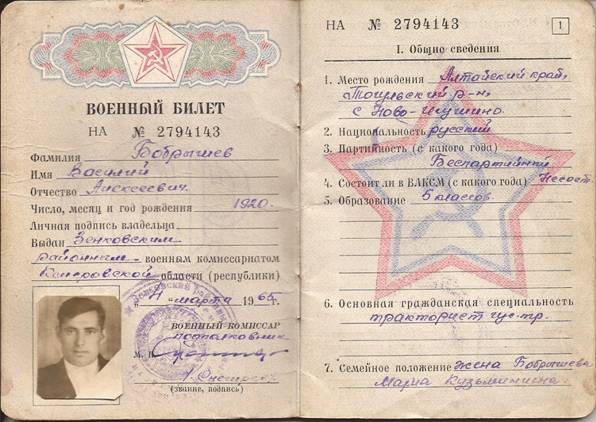 ВОЕННЫЙ БИЛЕТ
НА № 2794143
Фамилия Бобрышев
Имя Василий
Отчество Алексеевич.
Число, месяц и год рождения 1920.
Личная подпись владельца
Выдан Зенковским
районным военным комиссариатом
Кемеровской области (республики)
"4" марта 1965г.
ВОЕННЫЙ КОМИССАР
подполковник
М. П.
(звание, подпись)
НА № 2794143
1
I. Общие сведения
1. Место рождения Алтайский край,
Тогульский р-н,
с Ново-
2. Национальность русский
3. Партийность (с какого года)
Беспартийный
4. Состоит ли в ВЛКСМ (с какого года) Несост.
5. Образование 5 классов.
6. Основная гражданская специальность
тракторист
7. Семейное положение жена Бобрышева
Мария Кузьминична